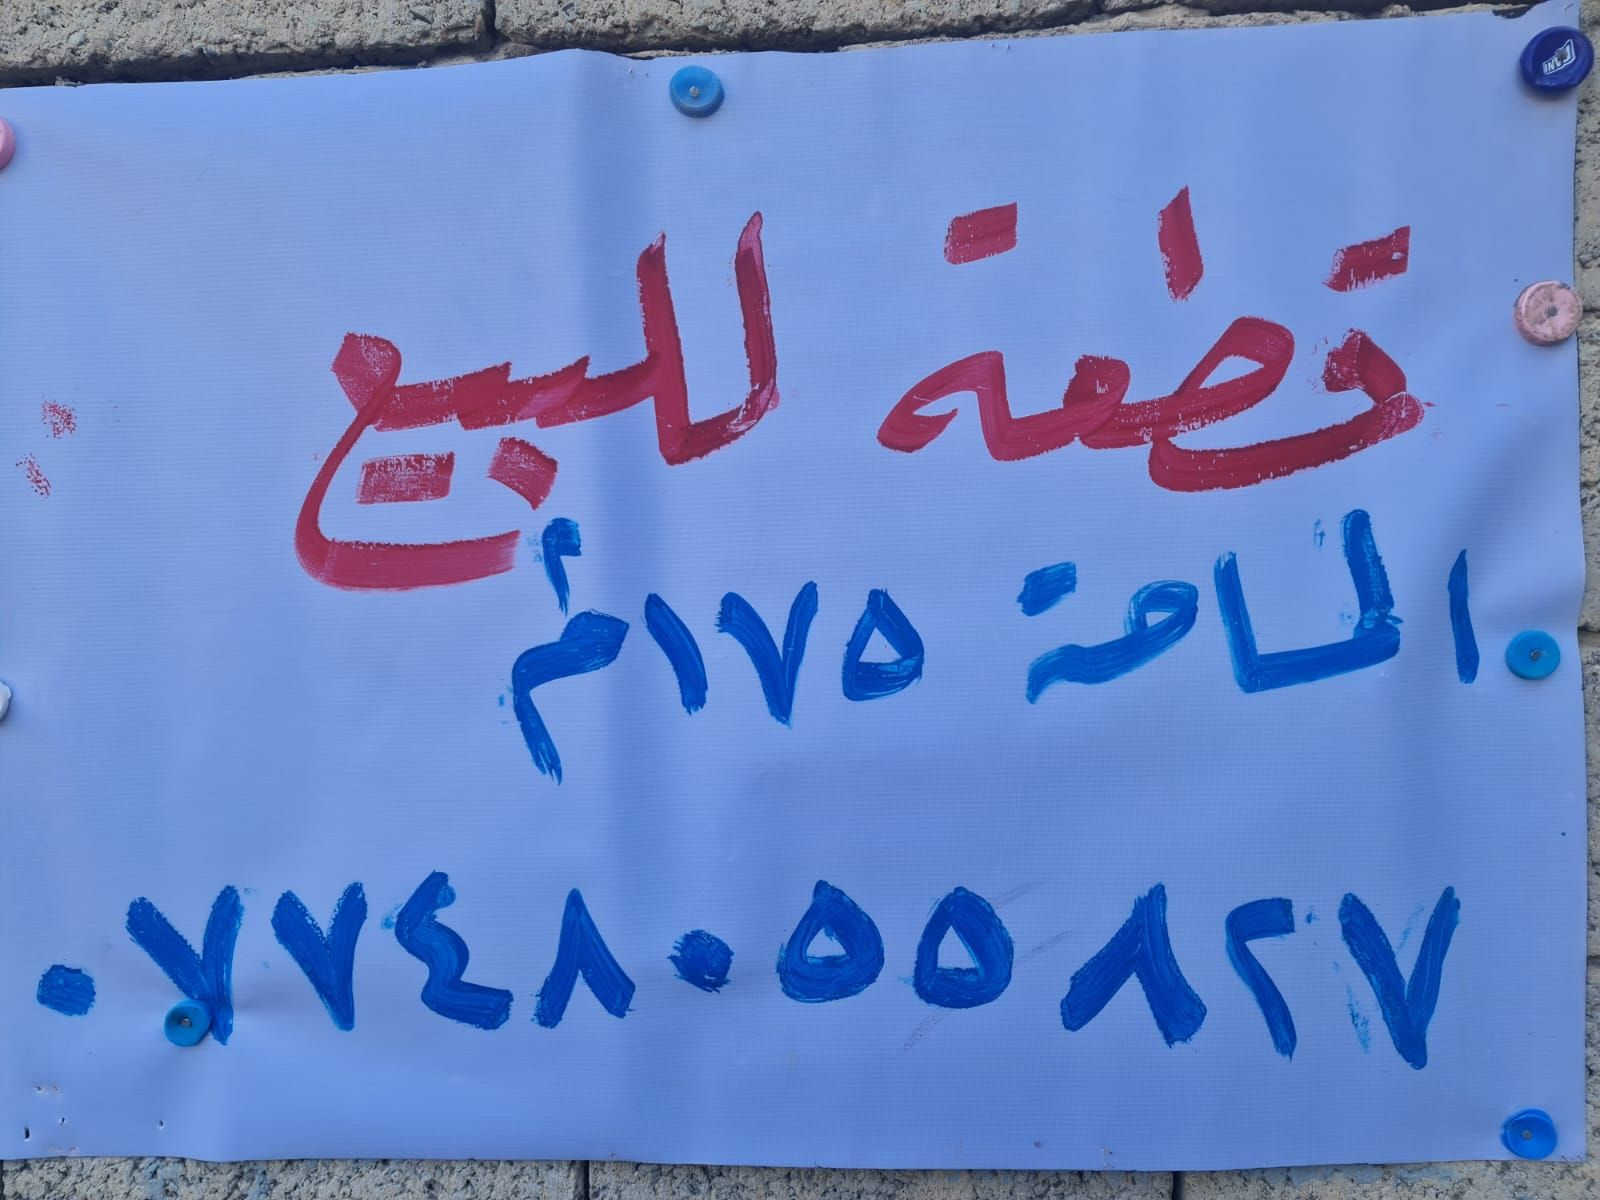 قطعة للبيع
المساحة ١٧٥م٢
٠٧٧٤٨٠٥٥٨٢٧